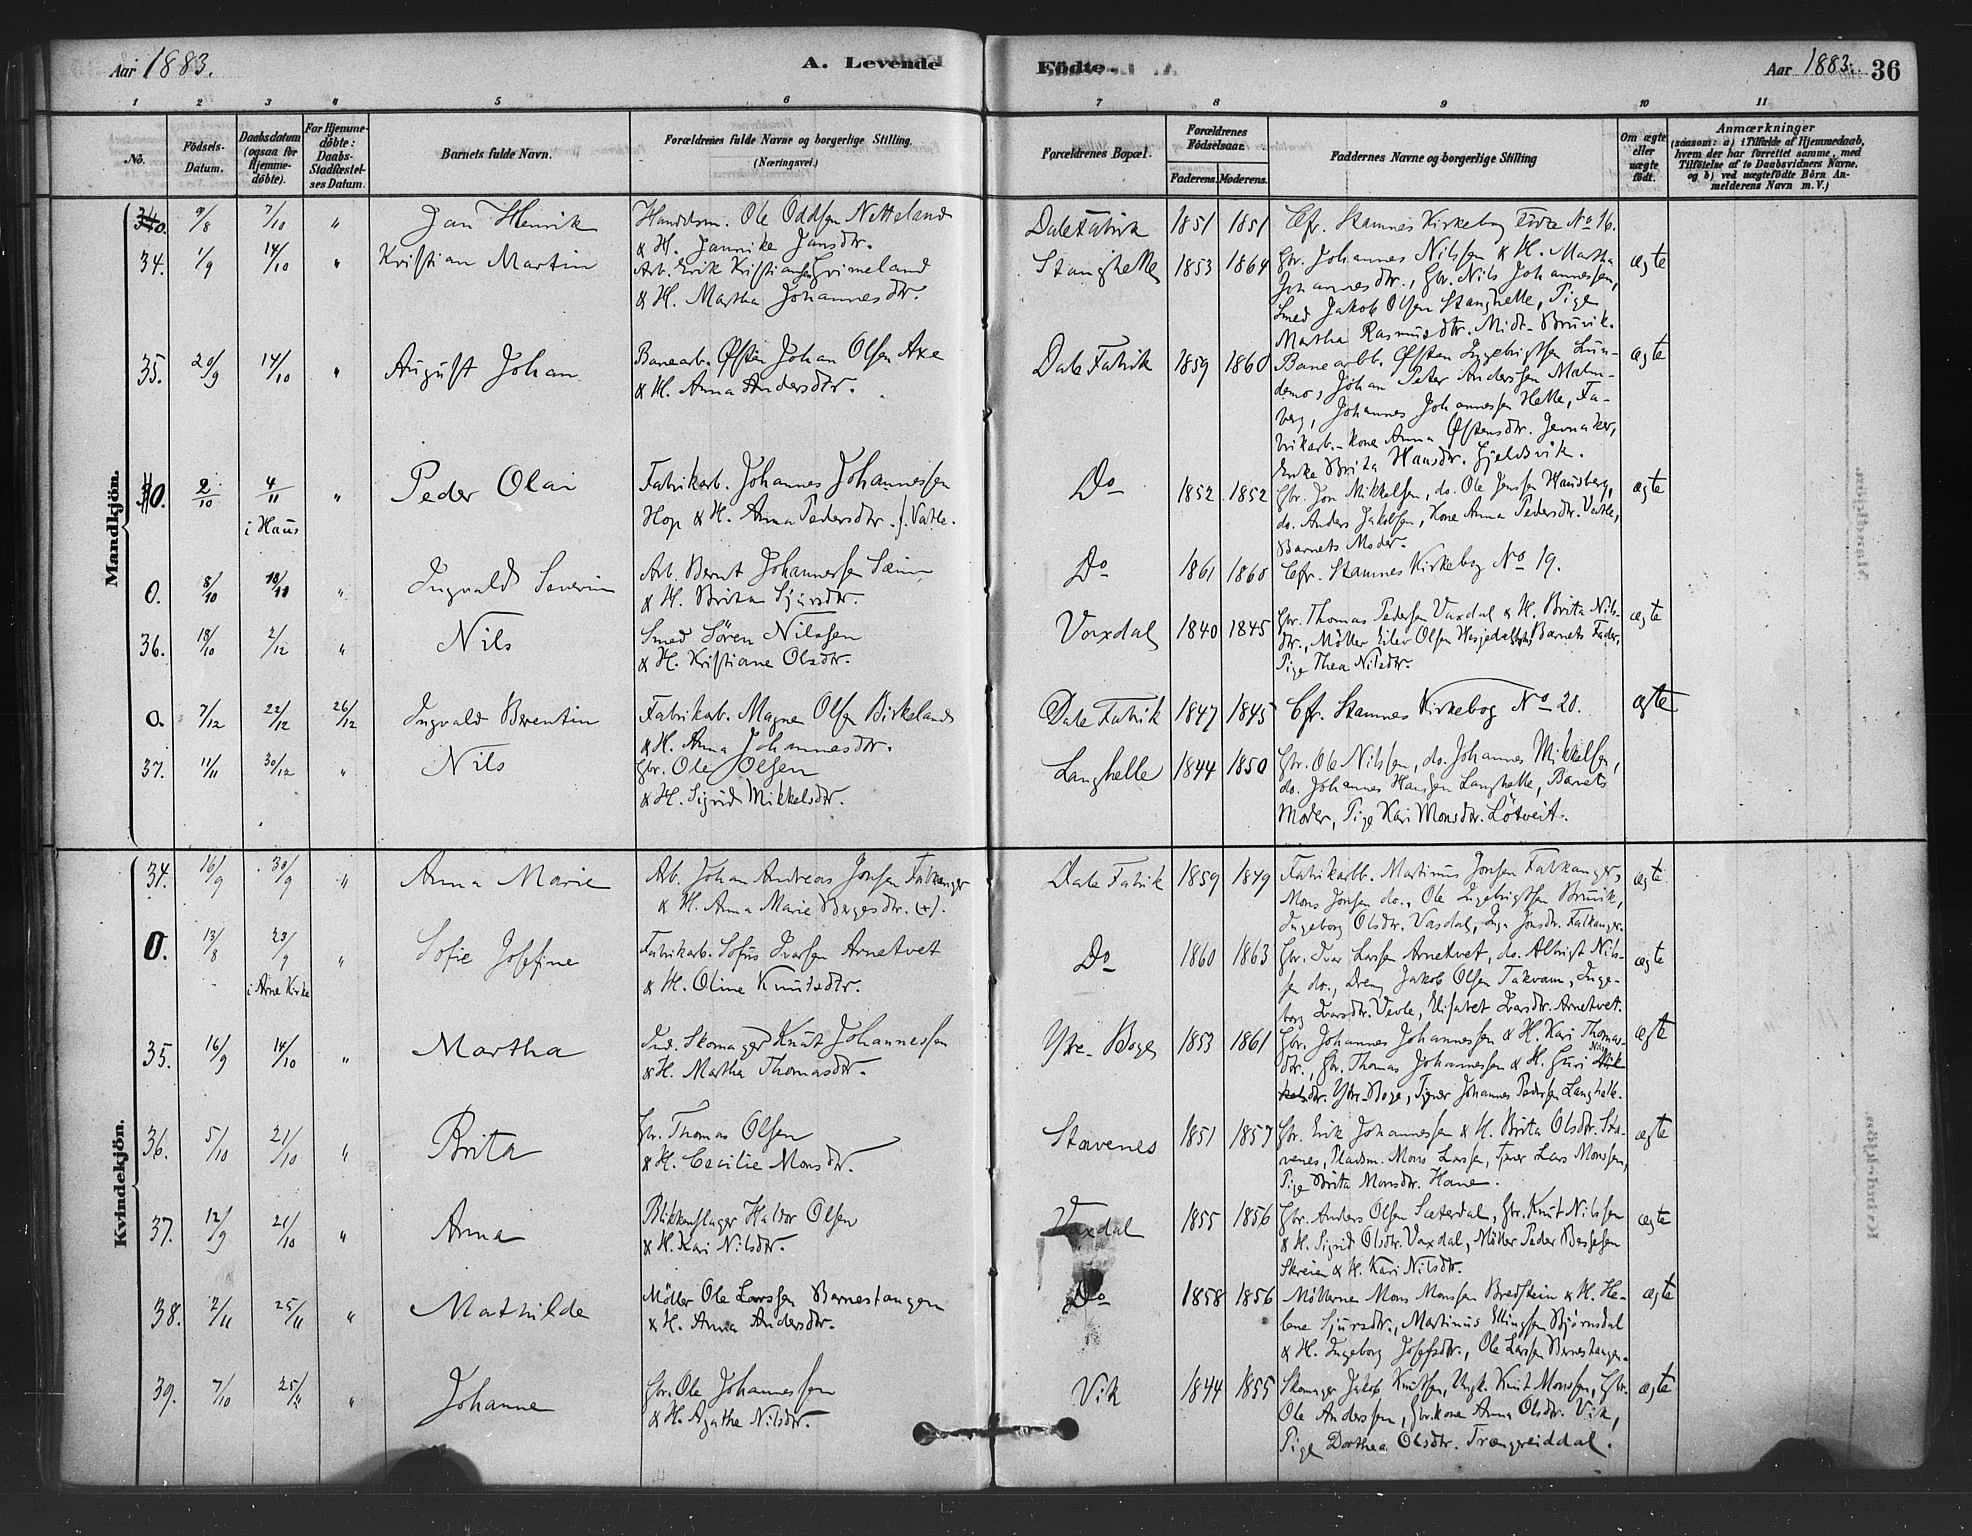 Aar 1883.
A. Levende
Fødte.
Aar 1883. 36
1 2 3 4 5 6 7 8 9 10 11
No.
Fødsels-
Datum.
Daabsdatum
(ogsaa for
Hjemme-
døbte).
For Hjemme-
døbte:
Daabs-
Stadfæstel-
ses Datum.
Barnets fulde Navn.
Forældrenes fulde Navne og borgerlige Stilling.
(Næringsvei.)
Forældrenes Bopæl.
Forældrenes
Fødselsaar.
Faderens. Moderens.
Faddernes Navne og borgerlige Stilling
Om ægte
eller
uægte
født.
Anmærkninger
(saasom: a) i Tilfælde af Hjemmedaab,
hvem der har forrettet samme, med
Tilføielse af to Daabsvidners Navne,
og b) ved uægtefødte Børn An-
melderens Navn m. V.)
Mandkjön.
0. 9/8 7/10 " Jan Henrik
Handelsm. Ole Oddsen Netteland
& H. Jannike Jansdtr.
Dale Fabrik 1851 1851
Cfr. Stamnes Kirkebog Födte No 16.
34. 1/9 14/10 " Kristian Martin
Arb. Erik Kristiansen Grimeland
& H. Martha Johannesdtr.
Stanghelle 1853 1864
Gbr. Johannes Nilssen & H. Martha
Johannesdtr., Gbr. Nils Johannessen,
Smed Jakob Olsen Stanghelle, Pige
Martha Rasmusdtr. Midt-Bruvik.
ægte
35. 20/9 14/10 " August Johan
Banearb. Østen Johan Olsen Axe
& H. Anna Andersdtr.
Dale Fabrik 1859 1860
Banearbb. Østen Ingebrigtsen Lun-
demo, Johan Peter Anderssen Malm-
berg, Johannes Johannessen Helle, Fa-
brikarb.-kone Anna Østensdtr. Jevnaker,
Enke Brita Hansdtr. Gjeldsvik.
ægte
0. 2/10 4/11 " Peder Olai
i Haus
Fabrikarb. Johannes Johannessen
Hop & H. Anna Pedersdtr. f. Vatle.
Do 1852 1852
Gbr. Jon Mikkelsen, do. Ole Jonssen Hausberg,
do. Anders Jakobsen, Kone Anna Pedersdtr. Vatle,
Barnets Moder.
ægte
0. 8/10 18/11 " Ingvald Severin
Arb. Bernt Johannessen Sæim
& H. Brita Sjursdtr.
Do 1861 1860
Cfr. Stamnes Kirkebog No 19.
36. 18/10 2/12 " Nils
Smed Sören Nilssen
& H. Kristiane Olsdtr.
Vaxdal 1840 1845
Gbr. Thomas Pedersen Vaxdal & H. Brita Nils-
dtr., Möller Eilev Olsen Hesjedal, Barnets Fader,
Pige Thea Nilsdtr.
ægte
0. 7/12 22/12 26/12 Ingvald Berentin
Fabrikarb. Magne Olsen Birkeland
& H. Anna Johannesdtr.
Dale Fabrik 1847 1845
Cfr. Stamnes Kirkebog No 20.
ægte
37. 11/11 30/12 " Nils
Gbr. Ole Olsen
& H. Sigrid Mikkelsdtr.
Langhelle 1844 1850
Gbr. Ole Nilssen, do. Johannes Mikkelsen,
do. Johannes Hansen Langhelle, Barnets
Moder, Pige Kari Monsdtr. Lötveit.
Kvindekjön.
34. 16/9 30/9 " Anna Marie
Arb. Johan Andreas Jonsen Falkanger
& H. Anna Marie Børgesdtr. (+).
Dale Fabrik 1859 1849
Fabrikarbb. Martinus Jonsen Falkanger,
Mons Jonsen do., Ole Ingebrigtsen Bruvik,
Ingeborg Olsdtr. Vaxdal, Inga Jonsdtr. Falkanger.
ægte
0. 13/8 23/9 " Sofie Josefine
i Arne Kirke
Fabrikarb. Sofus Ivarsen Arnetvet
& H. Oline Knutsdtr.
Do 1860 1863
Gbr. Ivar Larssen Arnetvet, do. Albrigt Nils-
sen do., Dreng Jakob Olsen Takvam, Inge-
borg Ivarsdtr. Vevle, Elisabet Ivarsdtr. Arnetvet.
ægte
35. 16/9 14/10 " Martha
Ind. Skomager Knut Johannessen
& H. Martha Thomasdtr.
Ytre-Boge 1853 1861
Gbr. Johannes Johannessen & H. Kari Thomas-
dtr., Gbr. Thomas Johannessen & H. Guri Nils-
dtr. Ytre-Boge, Tjener Johannes Pedersen Langhelle.
ægte
36. 5/10 21/10 " Brita
Gbr. Thomas Olsen
& H. Cecilie Monsdtr.
Stavenes 1851 1857
Gbr. Erik Johannessen & H. Brita Olsdtr. Sta-
venes, Pladsm. Mons Larssen, Tjener Lars Monssen,
Pige Brita Monsdtr. Hane.
ægte
37. 12/9 21/10 " Anna
Blikkenslager Haldor Olsen
& H. Kari Nilsdtr.
Vaxdal 1855 1856
Gbr. Anders Olsen Sæterdal, Gbr. Knut Nilssen
& H. Sigrid Olsdtr. Vaxdal, Möller Peder Børgesen
Skreien & H. Kari Nilsdtr.
ægte
38. 2/11 25/11 " Mathilde
Möller Ole Larssen Bernestangen
& H. Anna Andersdtr.
Do 1858 1856
Möllerne Mons Monssen Bredstein & H. He-
lene Sjursdtr., Martinus Ellingsen Bjørnsdal
& H. Ingeborg Josefsdtr., Ole Larssen Bernestangen.
ægte
39. 7/10 25/11 " Johanne
Gbr. Ole Johannessen
& H. Agathe Nilsdtr.
Vik 1844 1855
Skomager Jakob Knutsen, Ungk. Knut Monssen, Gbr.
Ole Anderssen, Gbr.kone Anna Olsdtr. Vik,
Pige Dorthea Olsdtr. Trængreiddal.
ægte